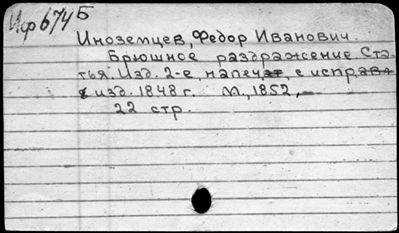 Иф674Б
Иноземцев, Федор Иванович.
Брюшное раздражение Ста-
тья. Изд. 2-е, напечат, с исправл
изд. 1848 г. М., 1852, —
22 стр.